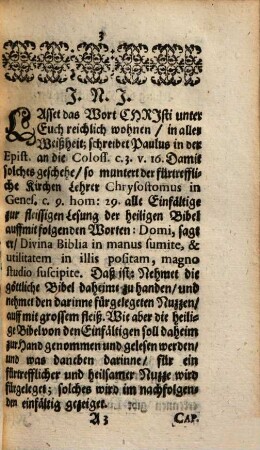 3
J. N. J.
LAsset das Wort CHRIsti unter
Euch reichlich wohnen / in aller
Weißheit; schreibet Paulus in der
Epist. an die Coloss. c. 3. v. 16. Damit
solches geschehe / so muntert der fürtreffli-
che Kirchen Lehrer Chrysostomus in
Genes. c. 9. hom: 29. alle Einfältige
zur fleissigen Lesung der heiligen Bibel
auff mit folgenden Worten: Domi, sagt
er / Divina Biblia in manus sumite, &
utilitatem in illis positam, magno
studio suscipite. Daß ist: Nehmet die
göttliche Bibel daheim zu handen / und
nehmet den darinne fürgelegeten Nuzzen /
auff mit grossem fleiß. Wie aber die heili-
ge Bibel von den Einfältigen soll daheim
zur Hand genommen und gelesen werden /
und was daneben darinne / für ein
fürtrefflicher und heilsamer Nuzze wird
fürgeleget; solches wird im nachfolgen-
den einfältig gezeiget.
A 3
CAP.